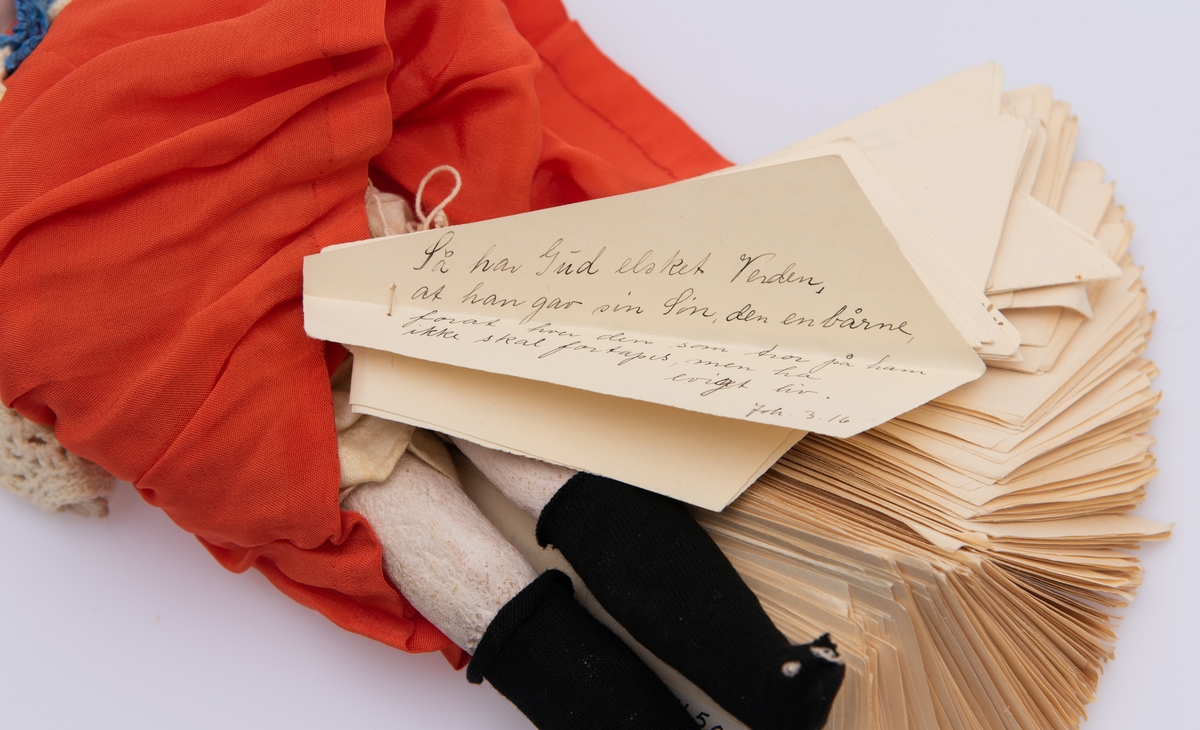 Så har Gud elsket Verden,
at han gav sin Søn, den enbårne,
forat hver den som tror på ham
ikke skal fortapes, men ha
evigt liv.
Joh. 3.16